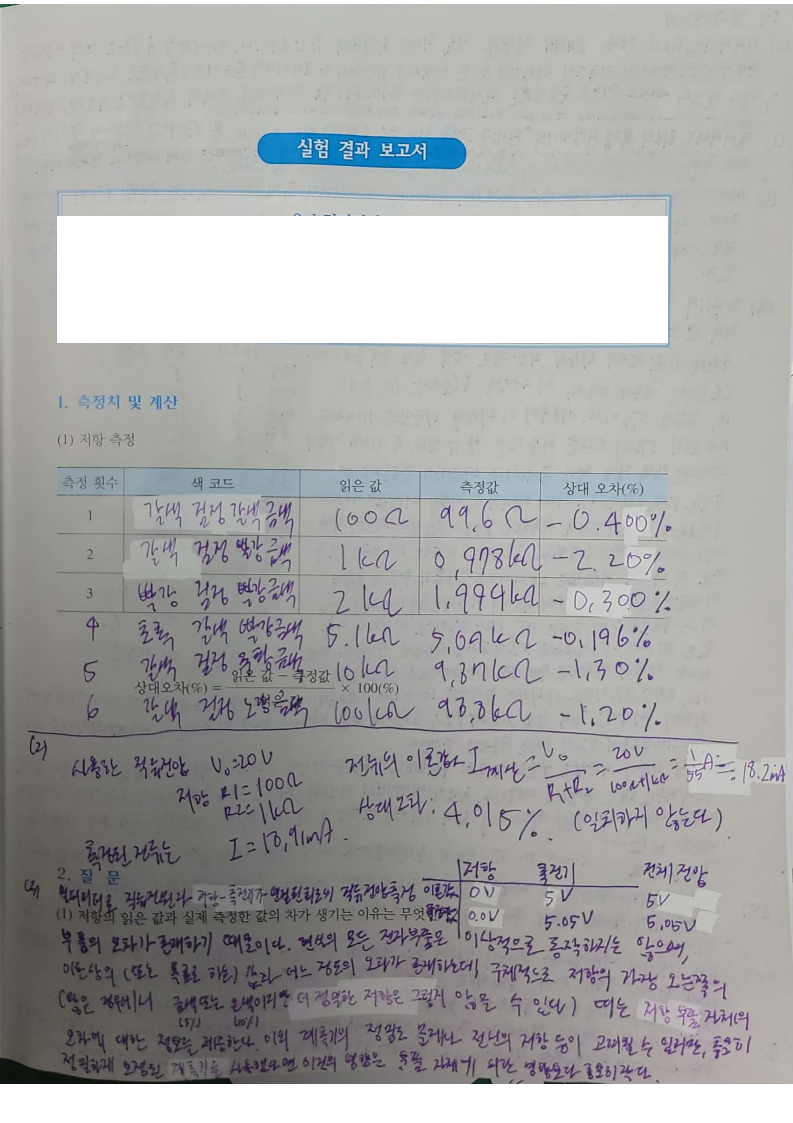 실험 결과 보고서
1. 측정치 및 계산
(1) 저항 측정
측정 횟수 색 코드 읽은 값 측정값 상대 오차(%)
1 갈색 검정 갈색 금색 100Ω 99.6Ω -0.400%
2 갈색 검정 빨강 금색 1kΩ 0.978kΩ -2.20%
3 빨강 검정 빨강 금색 2kΩ 1.994kΩ -0.300%
4 초록 갈색 빨강 금색 5.1kΩ 5.09kΩ -0.196%
5 갈색 검정 주황 금색 10kΩ 9.87kΩ -1.30%
상대오차(%) = 읽은 값 - 측정값 × 100(%)
6 갈색 검정 노랑 금색 100kΩ 98.8kΩ -1.20%
(2)
사용한 직류전압 V₀=20V 전류의 이론값 I계산 = V₀/R₁+R₂ = 20V/100Ω+1kΩ = 1/55 A = 18.2mA
저항 R1=100Ω
R2=1kΩ 상대오차: 4.015% (일치하지 않는다)
측정된 전류는 I=18.91mA.
2. 질 문
저항 축전기 전체 전압
(3) 멀티미터로 직류전원과 저항-축전기가 연결된 회로의 직류전압 측정 이론값 0V 5V 5V
(1) 저항의 읽은 값과 실제 측정한 값의 차가 생기는 이유는 무엇 측정값 0.0V 5.05V 5.05V
부품의 오차가 존재하기 때문이다. 현실의 모든 전자부품은 이상적으로 동작하지는 않으며,
이론상의 (또는 목표로 하는) 값과 어느 정도의 오차가 존재하는데, 구체적으로 저항의 가장 오른쪽의
(많은 경우에 금색 또는 은색이지만 더 정밀한 저항은 그렇지 않을 수 있다) 띠는 저항 부품 자체의
(5%) (10%)
오차에 대한 정보를 제공한다. 이외 계측기의 정밀도 문제나 전선의 저항 등이 고려될 수 있지만, 충분히
정밀하게 교정된 계측기를 사용했다면 이것의 영향은 부품 자체에 의한 영향보다 충분히 작다.